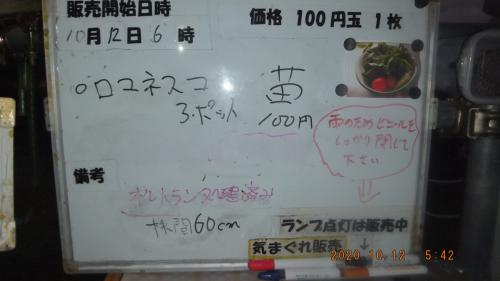 販売開始日時
価格 100円玉 1枚
10月12日6時
ロマネスコ 苗
3.ポット 100円
雨のためビニールを
しっかり閉じて
下さい
備考
オルトラン処理済み
株間60cm
ランプ点灯は販売中
気まぐれ販売
2020.10.12 5:42